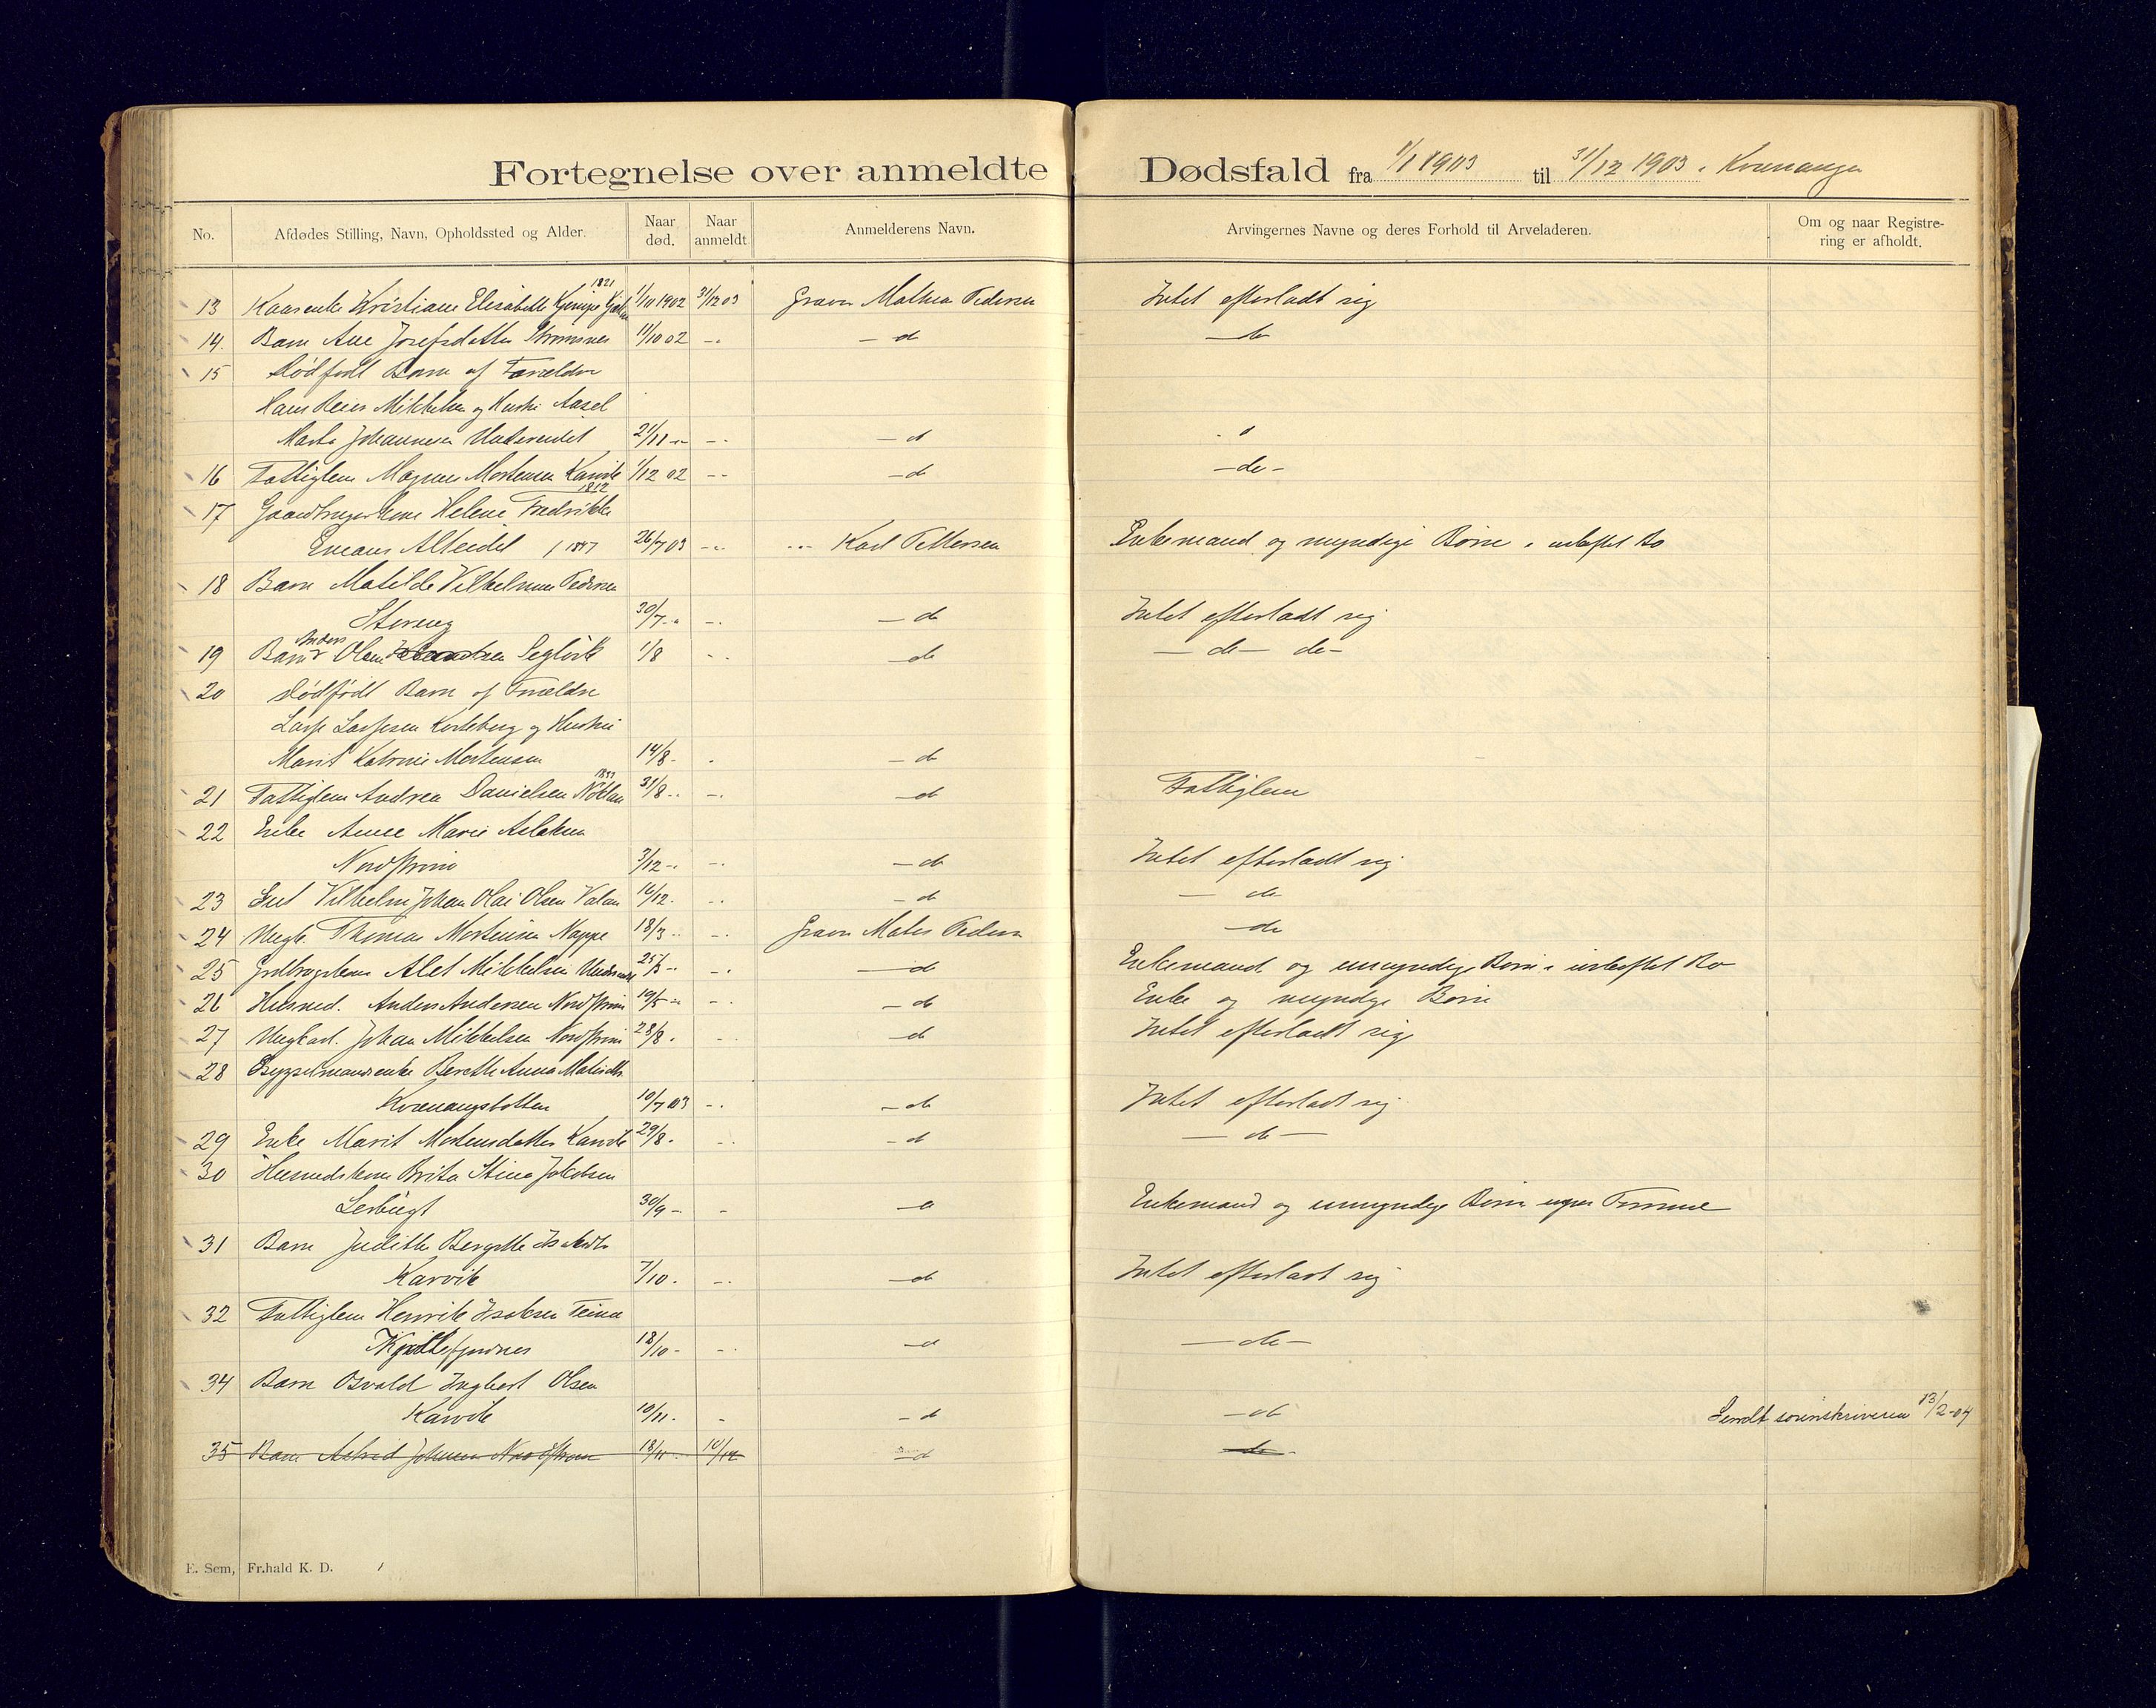 Fortegnelse over anmeldte Dødsfald fra 1/1 1903 til 31/12 1903 i Kvænangen
No. Afdødes Stilling, Navn, Opholdssted og Alder. Naar død. Naar anmeldt Anmelderens Navn. Arvingernes Navne og deres Forhold til Arveladeren. Om og naar Registrering er afholdt.
1821
13 Kristiane Elisabeth 1/10 1902 31/12 03 Graver Pedersen Intet efterladt sig
14. Barn Ane Josefsdatter Strømsnes 11/10 02 -. - d - do
15 Dødfødt Barn af Forældre
Hans Mikkelsen og Hustru
Johannesen 21/11 -. - d
16 Fattiglem Magnus Mortensen Karvik 1/12 02 -- - do - do -
1812
17 Gaardbrugerkone Helene Fredrikke
Alteidet f 1847 26/7 03 -.. Karl Pettersen Enkemand og myndige Børn i uskiftet Bo
18 Barn Matilde Vilhelmine Pedersen
Storeng 30/7 -. - do Intet efterladt sig
Anders
19 Barn Olsen Seglvik 1/8 - - - do - do - do -
20 Dødfødt Barn af Forældre
Lasse Lassesen og Hustru
Marit Katrine Mortensen 14/8 - . - do
21 Fattiglem Andrea Danielsen 31/8 -. - do Fattiglem
22 Enke Anne Marie Aslaksen
Nordstrøm 3/12 -. - do Intet efterladt sig
23 Vilhelm Johan Olai Olsen Valan 16/12. - do - do
24 Thomas Mortensen 18/3 -. Graver Pedersen - do
25 Mikkelsen 25/5 -. - do Enkemand og umyndige Børn i uskiftet Bo
26 Husmd. Anders Andersen Nordstrøm 19/5 - - do Enke og myndige Børn
27 Ungkarl. Johan Mikkelsen Nordstrøm 28/8. - do Intet efterladt sig
28 Berethe Anna
Kvænangsbotten 10/7 03 -. - do Intet efterladt sig
29 Enke Marit Mortensdatter Karvik 29/8. - d - do -
30 Husmdskone Brita Stina Jakobsen
30/9 - - - d Enkemand og umyndige Børn
31 Barn Judithe Bergitte
Karvik 7/10. -. - do Intet efterladt sig
32 Fattiglem Henrik Isaksen
18/10 - -. - d - do -
34 Barn Osvald Ingbert Olsen
Karvik 10/11. - - d - do Sendt sorenskriveren 13/2-04
35 Barn Astrid Johnsen 18/11 - d - do -
E. Sem, Fr.hald K. D.